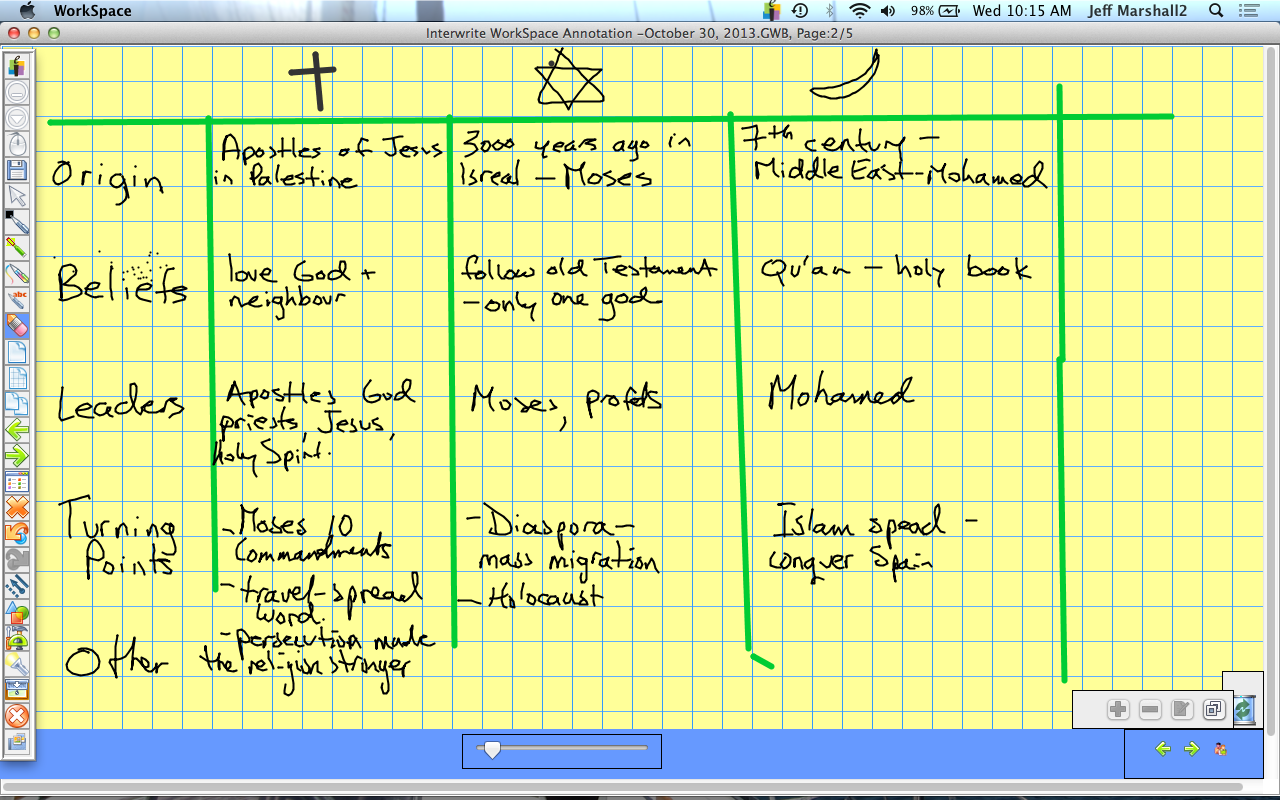 WorkSpace
98%
Wed 10:15 AM
Jeff Marshall2
Interwrite WorkSpace Annotation -October 30, 2013.GWB, Page:2/5
Origin
Apostles of Jesus
in Palestine
3000 years ago in
Isreal - Moses
7th century -
Middle East--Mohamed
Beliefs
love God +
neighbour
follow old Testament
- only one god
Qu'an - holy book
Leaders
Apostles God
priests, Jesus,
holy Spirit.
Moses, profets
Mohamed
Turning
Points
- Moses 10
Commandments
- travel-spread
word.
- persecution made
the religion stronger
- Diaspora -
mass migration
- Holocaust
Islam spead -
conquer Spain
Other
abc